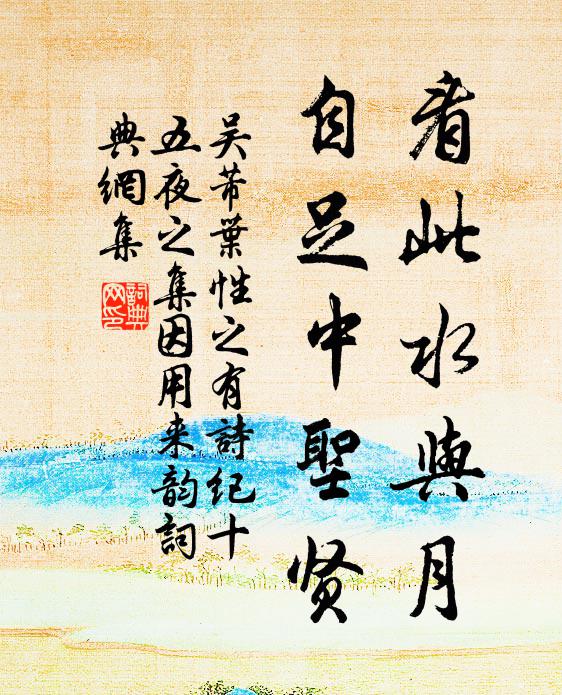 看此水與月
自足中聖贤
吴芾葉性之有詩紀十
五夜之集因用来韵詞
典網集
詞典
网印